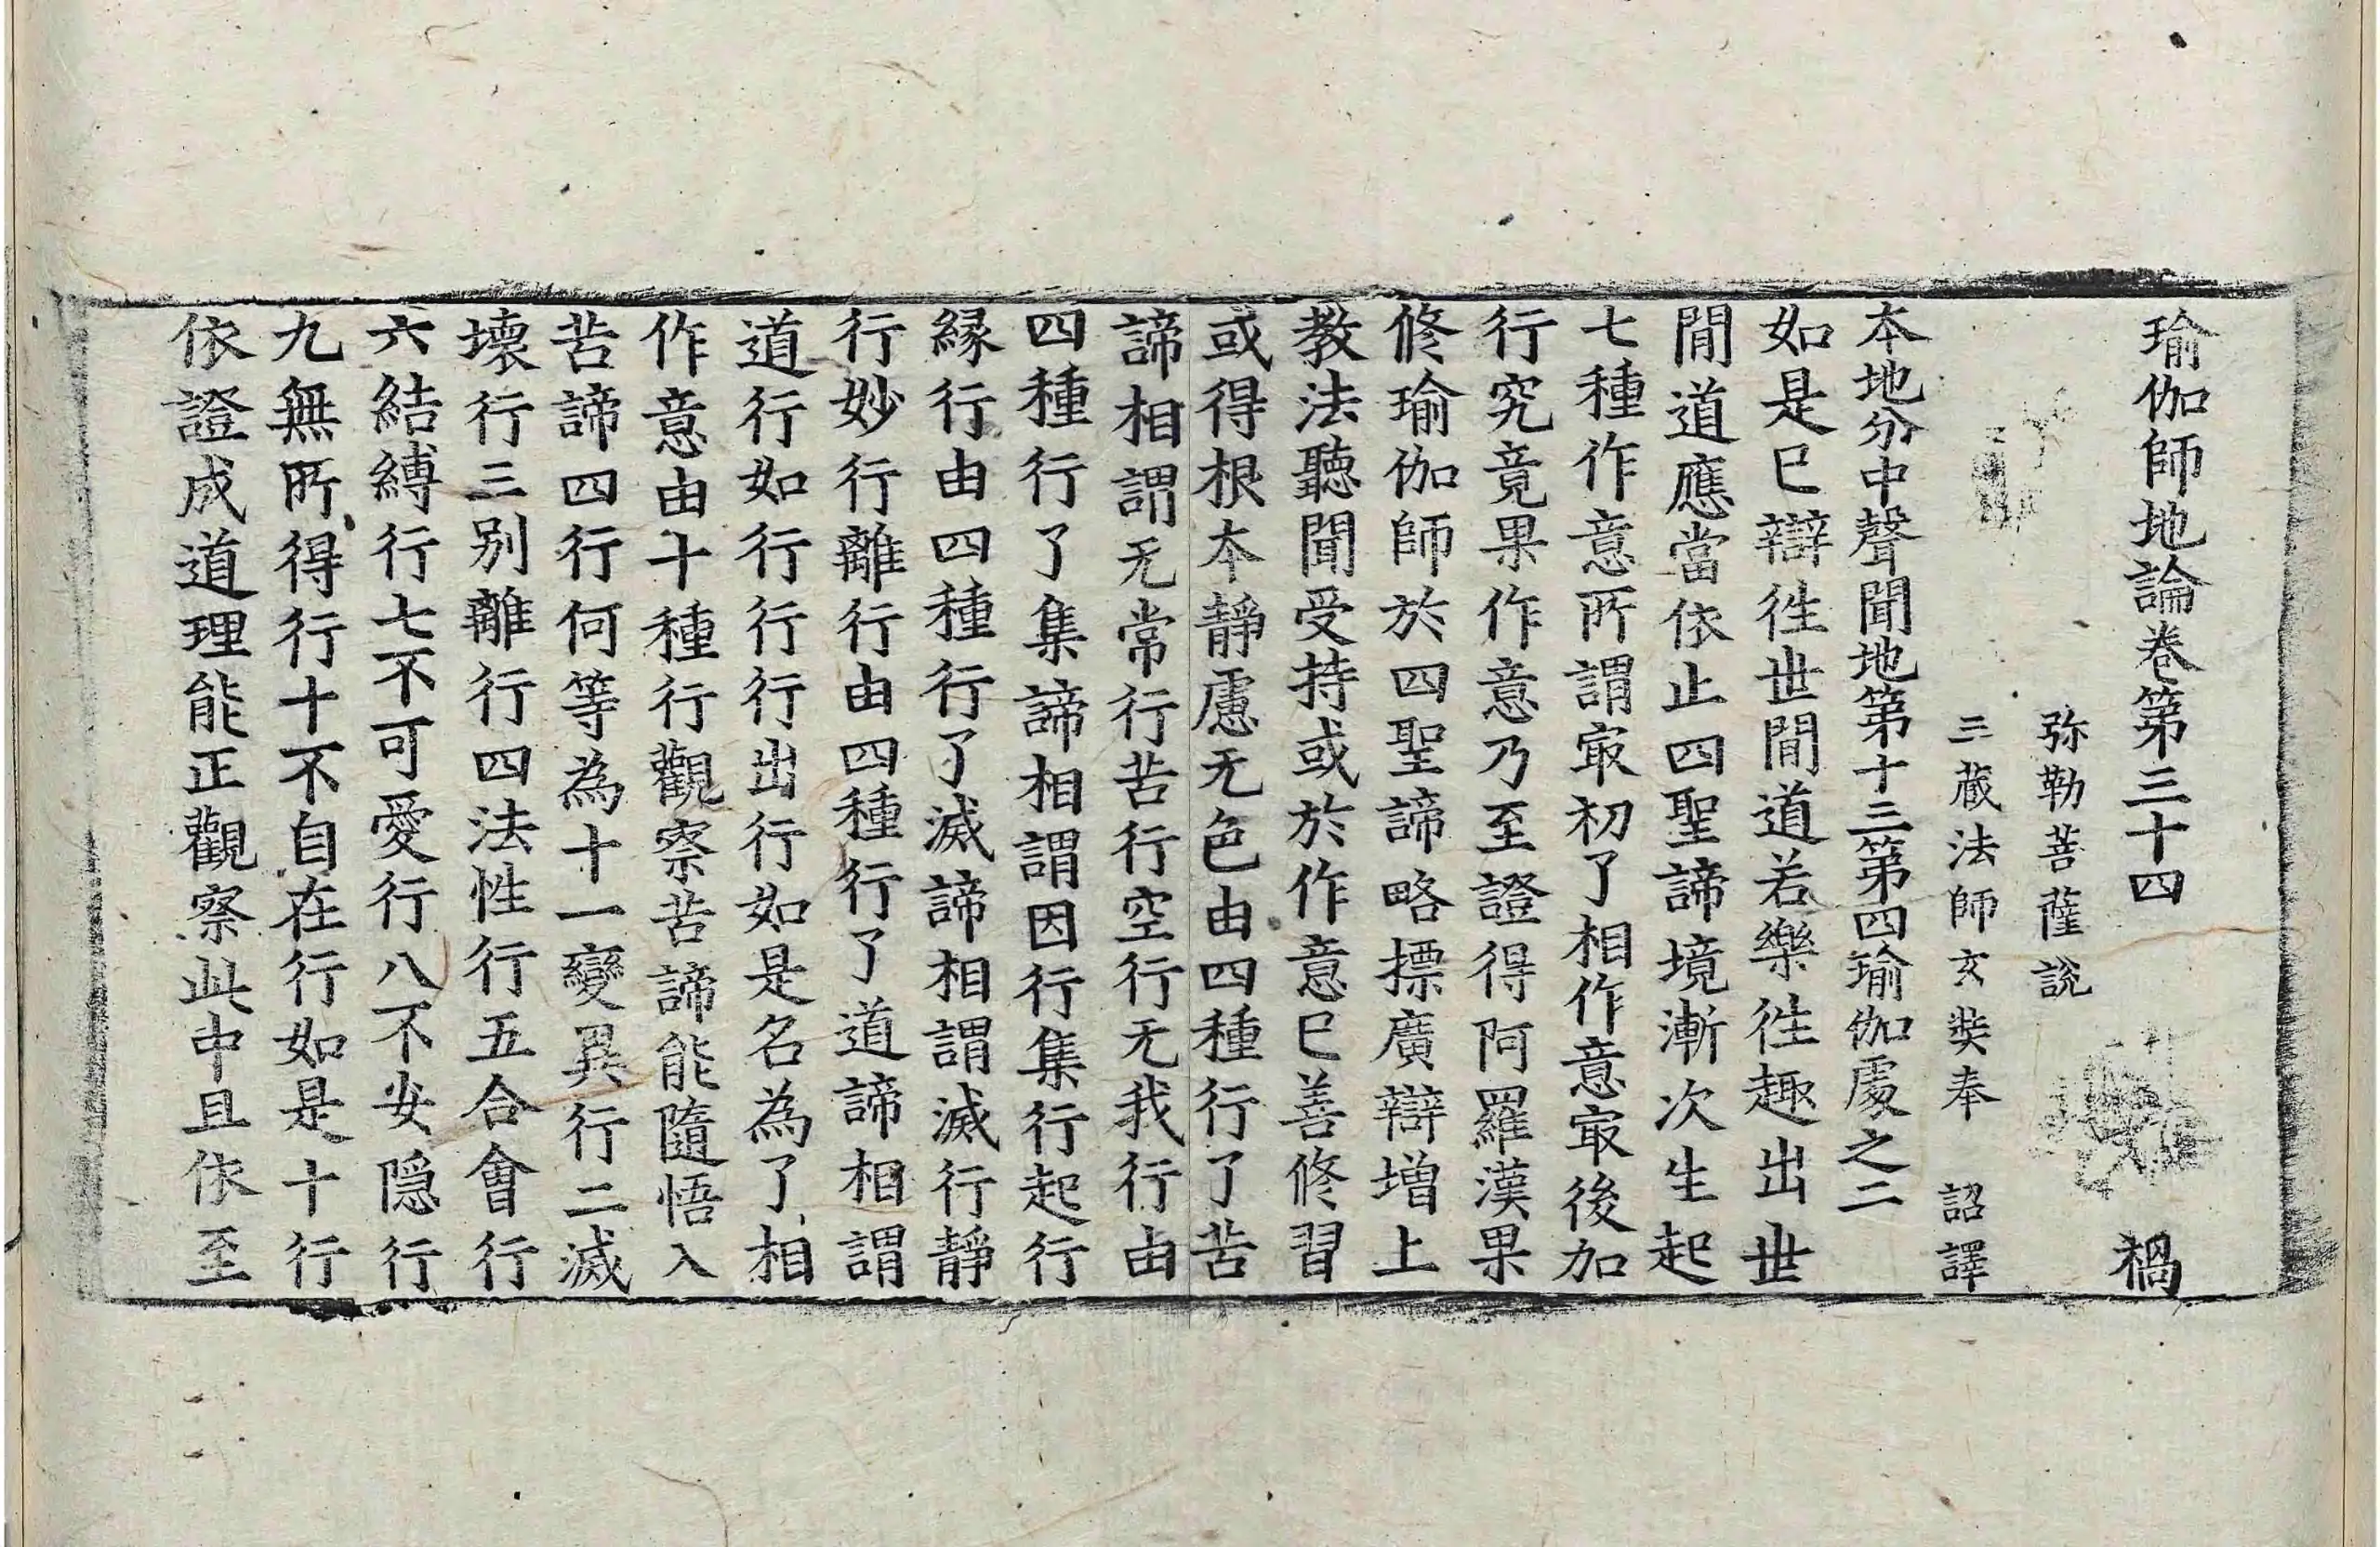 瑜伽師地論卷第三十四 禍
弥勒菩薩說
三藏法師玄奘奉 詔譯
本地分中聲聞地第十三第四瑜伽處之二
如是已辯徃世間道若樂徃趣出世
間道應當依止四聖諦境漸次生起
七種作意所謂㝡初了相作意㝡後加
行究竟果作意乃至證得阿羅漢果
修瑜伽師於四聖諦略摽廣辯增上
教法聽聞受持或於作意已善修習
或得根本靜慮无色由四種行了苦
諦相謂无常行苦行空行无我行由
四種行了集諦相謂因行集行起行
緣行由四種行了滅諦相謂滅行靜
行妙行離行由四種行了道諦相謂
道行如行行行出行如是名為了相
作意由十種行觀察苦諦能隨悟入
苦諦四行何等為十一變異行二滅
壞行三別離行四法性行五合會行
六結縛行七不可愛行八不安隠行
九無所得行十不自在行如是十行
依證成道理能正觀察此中且依至